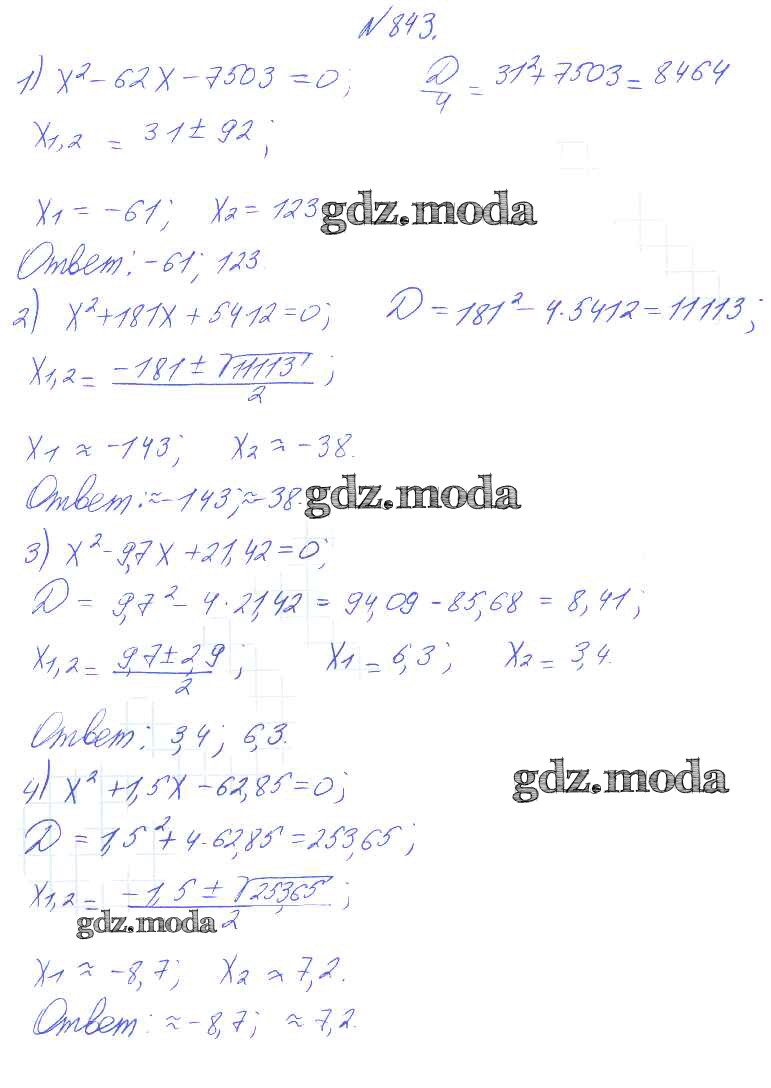 № 843.
1) x² - 62x - 7503 = 0; D/4 = 31² + 7503 = 8464
x1,2 = 31 ± 92;
x1 = -61; x2 = 123 gdz.moda
Ответ: -61; 123.
2) x² + 181x + 5412 = 0; D = 181² - 4·5412 = 11113;
x1,2 = (-181 ± √11113)/2;
x1 ≈ -143; x2 ≈ -38.
Ответ: ≈ -143; ≈ -38. gdz.moda
3) x² - 9,7x + 21,42 = 0;
D = 9,7² - 4·21,42 = 94,09 - 85,68 = 8,41;
x1,2 = (9,7 ± 2,9)/2; x1 = 6,3; x2 = 3,4.
Ответ: 3,4; 6,3.
4) x² + 1,5x - 62,85 = 0; gdz.moda
D = 1,5² + 4·62,85 = 253,65;
x1,2 = (-1,5 ± √253,65)/2;
gdz.moda
x1 ≈ -8,7; x2 ≈ 7,2.
Ответ: ≈ -8,7; ≈ 7,2.